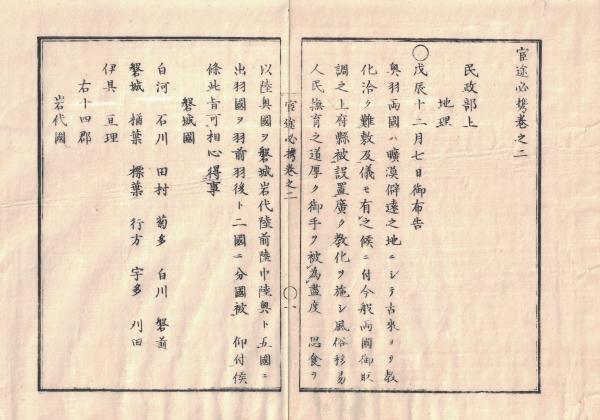 官途必携巻之二
民政部上
地理
○戊辰十二月七日御布告
奥羽両國ハ曠漠僻遠之地ニシテ古來ヨリ教
化洽ク難敷及儀モ有之候ニ付今般両國御取
調之上府縣被設置廣ク教化ヲ施シ風俗移易
人民撫育之道厚ク御手ヲ被為盡度 思食ヲ
官途必携巻之二 ○一
以陸奥國ヲ磐城岩代陸前陸中陸奥ト五國ニ
出羽國ヲ羽前羽後ト二國ニ分國被 仰付候
條此旨可相心得事
磐城國
白河 石川 田村 菊多 白川 磐前
磐城 楢葉 標葉 行方 宇多 刈田
伊具 亘理
右十四郡
岩代國